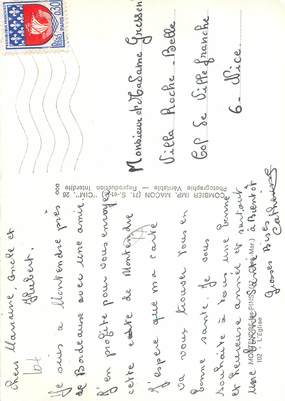 Chers Marraine, Andé et
Hubert.
Je suis à Montendre près
de Bordeaux avec une amie
J'en profite pour vous envoyer
cette carte de Montendre
J'espère que ma carte
va vous trouver tous en
bonne santé. Je vous
souhaite à tous une bonne
et heureuse année et surtout
une bonne santé à Benoît
Grosses Bises
Catherine
Monsieur et Madame Gressen
Villa Roche-Belle
Col de Villefranche
6 - Nice
COMBIER IMP. MACON (71. S.-et-L.) "CIM", 28
Photographie Véritable — Reproduction Interdite
102 - L'Église
0,30